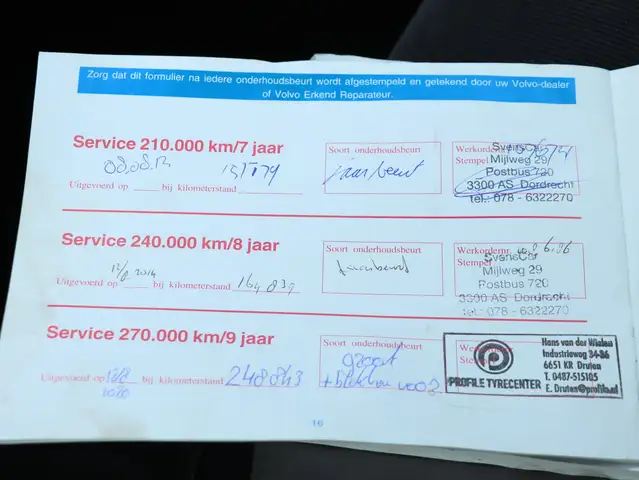 Zorg dat dit formulier na iedere onderhoudsbeurt wordt afgestempeld en getekend door uw Volvo-dealer
of Volvo Erkend Reparateur.
Service 210.000 km/7 jaar
Uitgevoerd op 08.08.12 bij kilometerstand
Soort onderhoudsbeurt
jaarbeurt
Werkordernr.
Stempel
SvensCar
Mijlweg 29
Postbus 720
3300 AS Dordrecht
tel.: 078 - 6322270
Service 240.000 km/8 jaar
Uitgevoerd op 12/8 2014 bij kilometerstand 164 839
Soort onderhoudsbeurt
jaarbeurt
Werkordernr.
Stempel
SvensCar
Mijlweg 29
Postbus 720
3300 AS Dordrecht
tel.: 078 - 6322270
Service 270.000 km/9 jaar
Uitgevoerd op 2020 bij kilometerstand 248843
Soort onderhoudsbeurt
groot
+ blokken voor
PROFILE TYRECENTER
Hans van der Wielen
Industrieweg 34-36
6651 KR Druten
T. 0487-515105
E. Druten@profile.nl
16